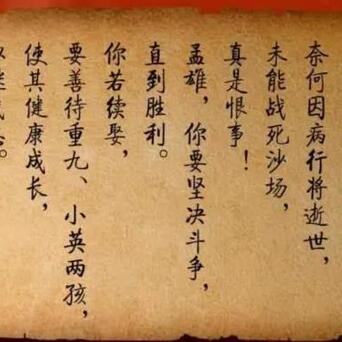 奈何因病行将逝世，
未能战死沙场，
真是恨事！
孟雄，你要坚决斗争，
直到胜利。
你若续娶，
要善待重九、小英两孩，
使其健康成长，